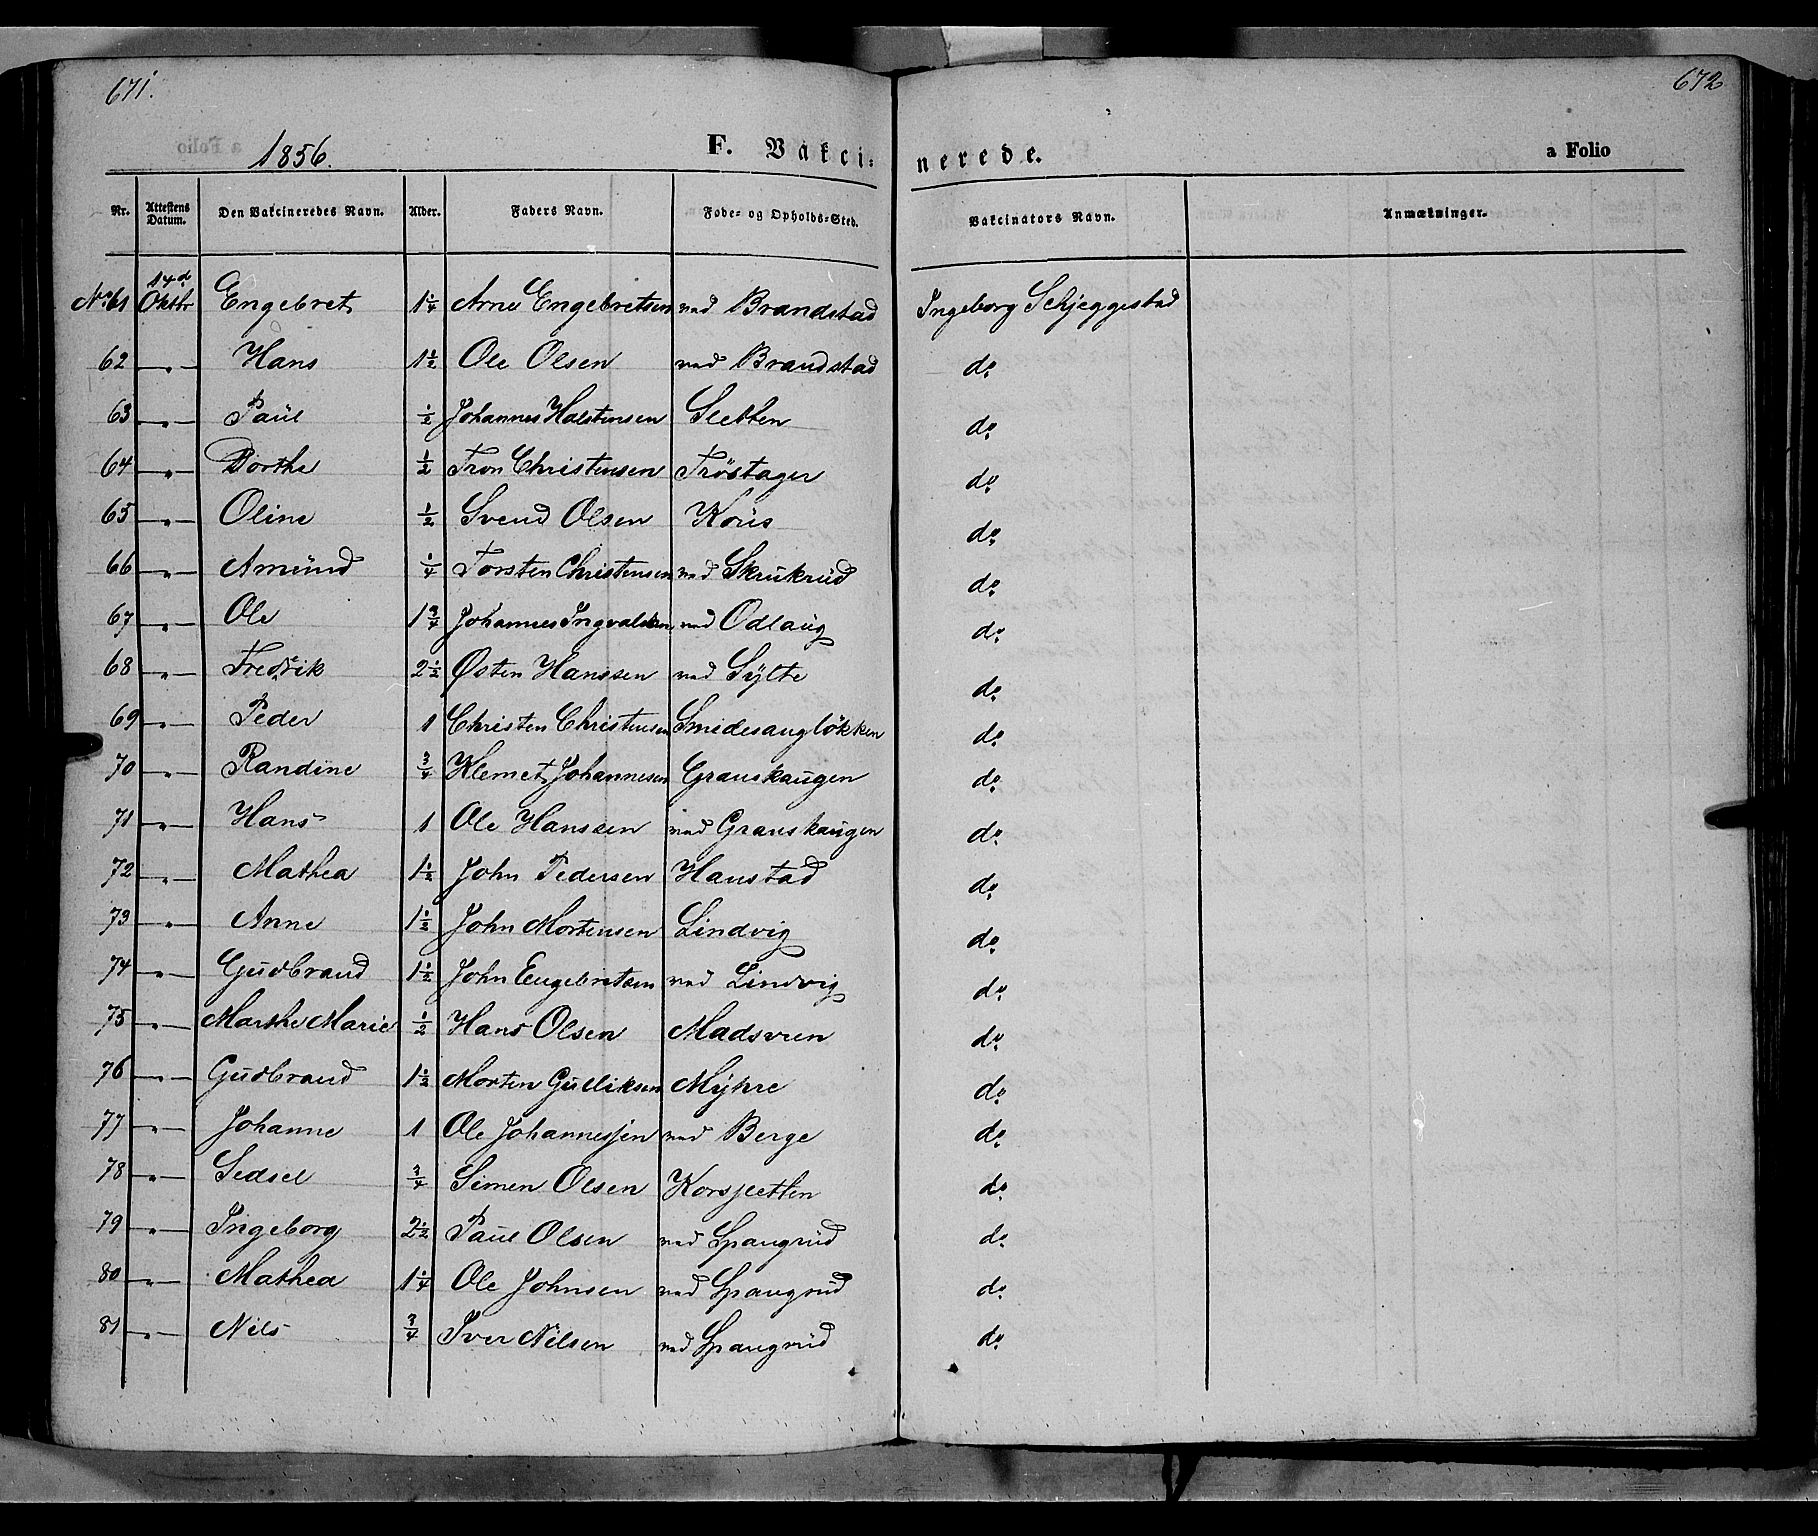 671.
672
1856.
F. Vakci-
nerede.
a Folio
Nr. Attestens Datum. Den Vakcineredes Navn. Alder. Faders Navn. Føde- og Opholds-Sted. Vakcinators Navn. Anmærkninger.
No 61 14d Oktbr Engebret 1 1/4 Arne Engebretsen ved Brandstad Ingeborg Schjeggestad
62 —"— Hans 1 1/2 Ole Olsen ved Brandstad do
63 —"— Paul 1/2 Johannes Halstensen Sletten do
64 —"— Dorthe 1/2 Tron Christensen Tröstager do
65 —"— Oline 1/2 Svend Olsen Korüs do
66 —"— Amünd 1/4 Torsten Christensen ved Skrukrüd do
67 —"— Ole 1 3/4 Johannes Ingvaldsen ved Odlaug do
68 —"— Fredrik 2 1/2 Østen Hanssen ved Sylte do
69 —"— Peder 1 Christen Christensen Smidesanglökken do
70 —"— Randine 3/4 Klemet Johannesen Grauskaugen do
71 —"— Hans 1 Ole Hanssen ved Grauskaugen do
72 —"— Mathea 1 1/2 John Pedersen Haustad do
73 —"— Anne 1 1/2 John Mortensen Lindvig do
74 —"— Gudbrand 1 1/2 John Engebretsen ved Lindvig do
75 —"— Marthe Marie 1/2 Hans Olsen Madsveen do
76 —"— Gudbrand 1 1/2 Morten Gulliksen Myhre do
77 —"— Johanne 1 Ole Johannessen ved Berge do
78 —"— Sedsel 3/4 Simen Olsen Korsletten do
79 —"— Ingeborg 2 1/2 Paul Olsen ved Spangrüd do
80 —"— Mathea 1 1/4 Ole Johnsen ved Spangrüd do
81 —"— Nils 3/4 Iver Nilsen ved Spangrüd do